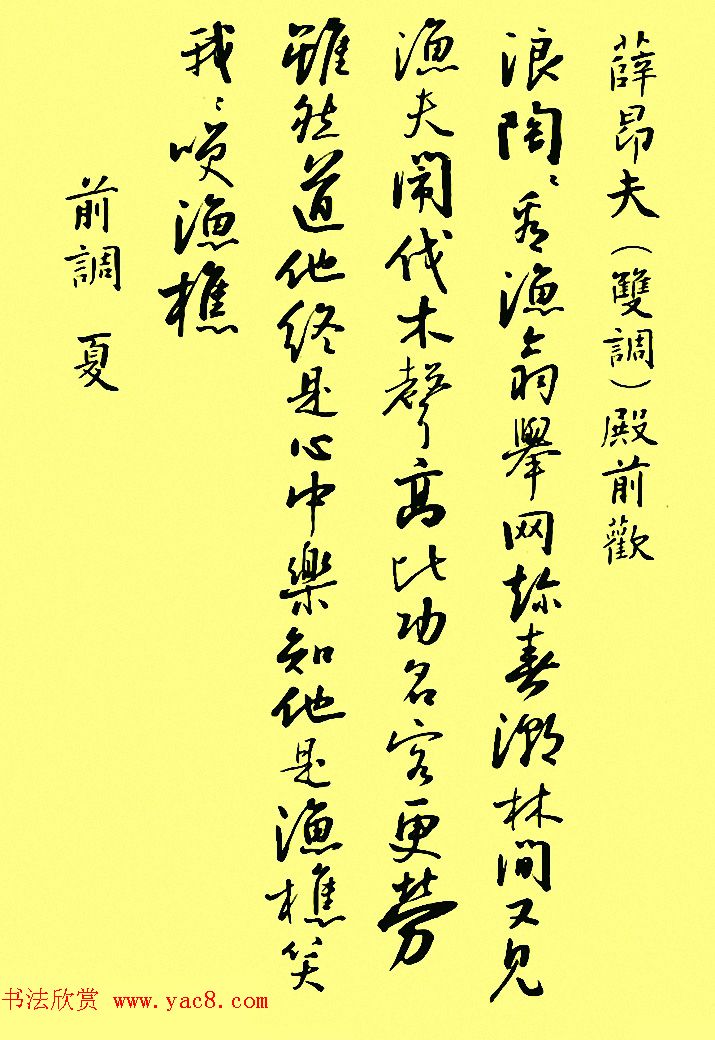 薛昂夫（雙調）殿前歡
浪陶〻看漁翁舉网趂春潮林間又見
漁夫閙伐木聲高比功名客更劳
雖然道他终是心中樂知他是漁樵笑
我〻咲漁樵
前調 夏
书法欣赏 www.yac8.com